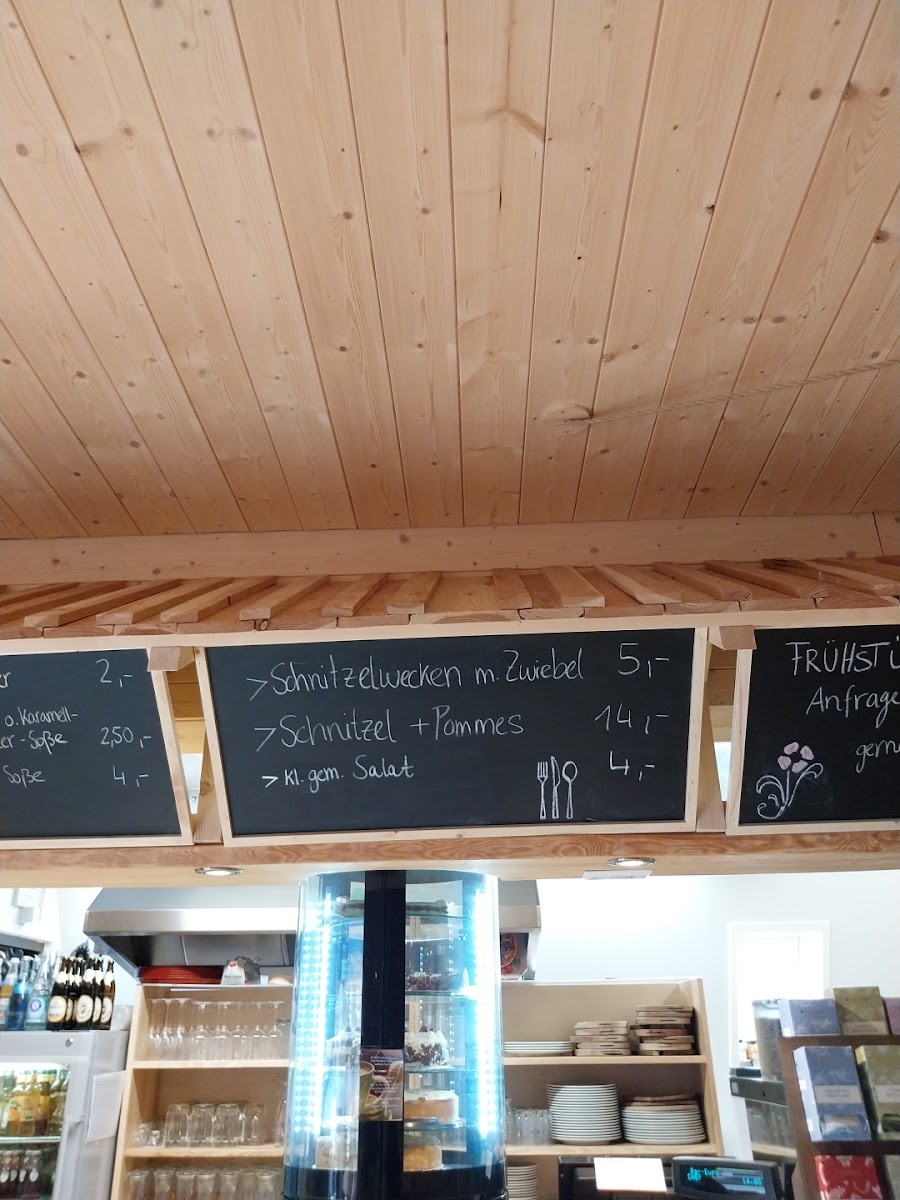 2,-
o. Karamell-
-Soße 2,50,-
Soße 4,-
> Schnitzelwecken m. Zwiebel 5,-
> Schnitzel + Pommes 14,-
> kl. gem. Salat 4,-
FRÜHSTÜ
Anfrage
gern